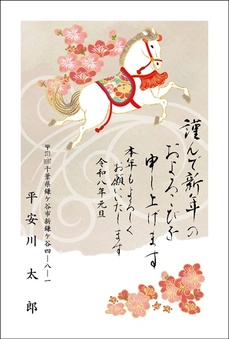 謹んで新年の
およろこびを
申し上げます
本年もよろしく
お願いいたします
令和八年元旦
千葉県鎌ケ谷市新鎌ケ谷四-八-一
平安川 太郎